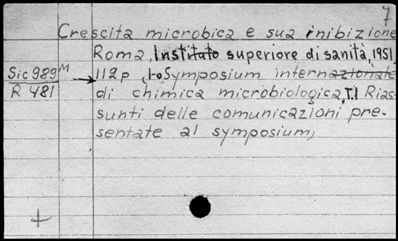 7
Crescita microbica e sua inibizione
Roma, Istituto superiore di sanità, 1951
Sic 989 M 112p, 1o Symposium internazionale
R 481 di chimica microbiologica, T.I Rias-
sunti delle comunicazioni pre-
sentate al symposium,
+